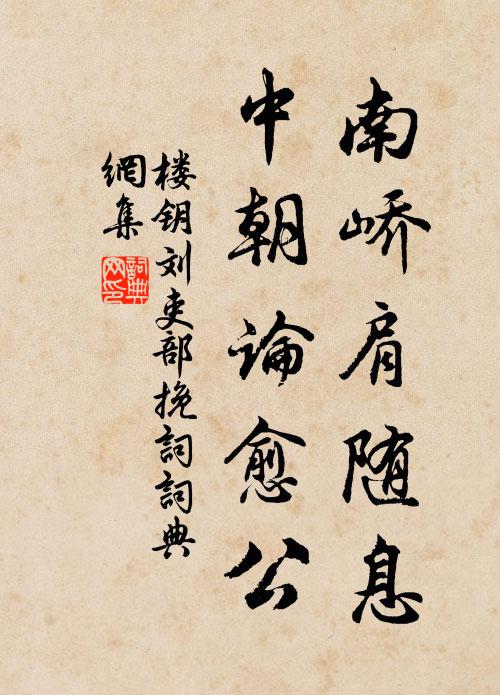 南峤肩随息
中朝論愈公
楼钥刘吏部挽詞詞典
網集
詞典網印